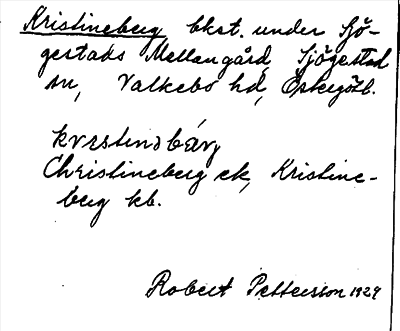 Kristineberg, bkst. under Sjö-
gestads Mellangård, Sjögestad
sn, Valkebo hd, Östergötl.
krɪstɪnəbærj
Christineberg ek, Kristine-
berg kb.
Robert Petterson 1929